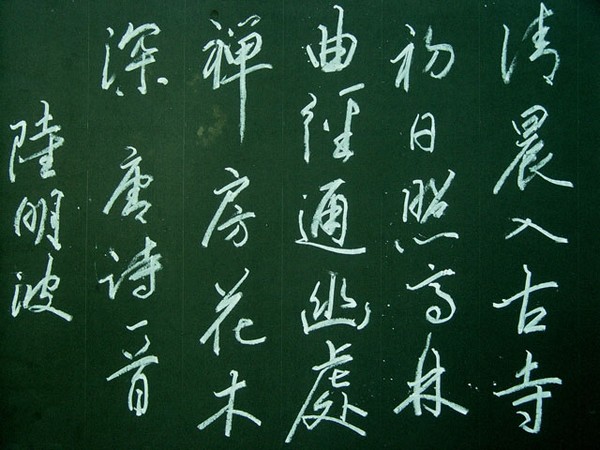 清晨入古寺
初日照高林
曲径通幽處
禅房花木
深 唐诗一首
陸明波